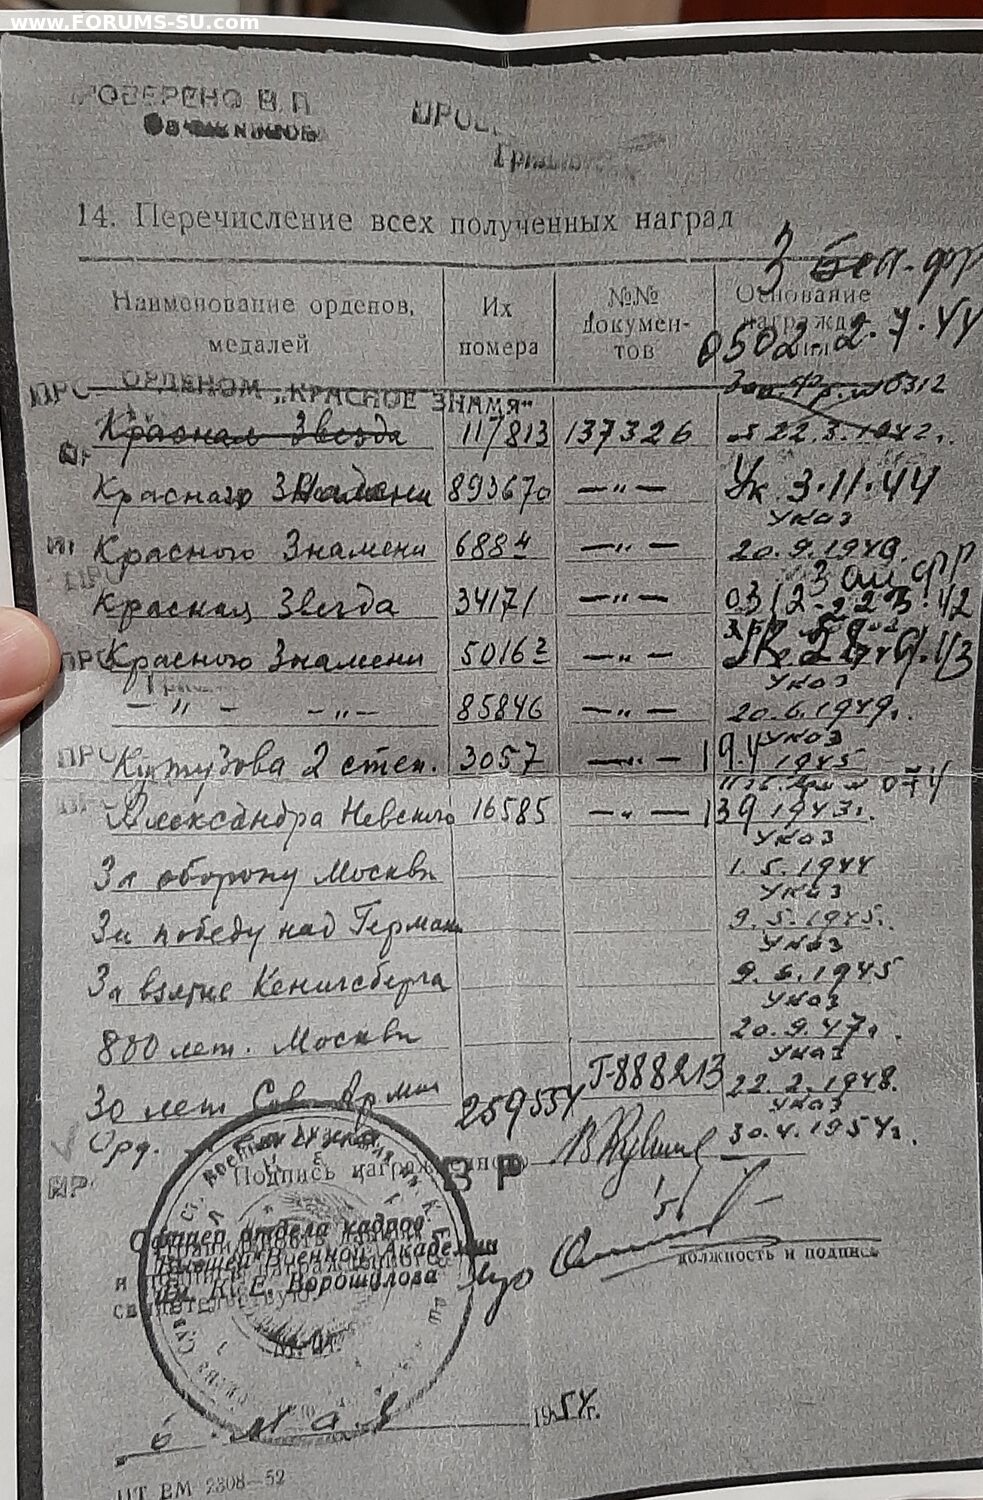 www.FORUMS-SU.com
РОВЕРЕНО В. П
14. Перечисление всех полученных наград
3 Бел. фр
Наименование орденов, медалей
Их номера
№№ докумен-тов
Основание
0502 2.7.44
ОРДЕНОМ „КРАСНОЕ ЗНАМЯ"
Красная Звезда 117813 137326 22.3.1942г.
Красного Знамени 893670 —„— Ук 3.11.44
Указ
Красного Знамени 6884 —„— 20.9.1940.
Красная Звезда 34171 —„— 0312
Красного Знамени 50162 —„—
Указ
—„— —„— 85846 —„— 20.6.1949г.
Указ
Кутузова 2 степ. 3057 —„— 19.4 1945
Александра Невского 16585 —„— 139 1943г.
Указ
За оборону Москвы 1.5.1944
Указ
За победу над Герман 9.5.1945.
Указ
За взятие Кенигсберга 9.6.1945
Указ
800 лет. Москвы 20.9.47г.
Указ
30 лет Сов. Арми 22.2.1948.
Указ
Орд. 259554 Г-888213 30.4.1954г.
Подпись награжденного
Офицер отдела кадров
Высшей Военной Академии
им. К. Е. Ворошилова
должность и подпись
6 Мая 1954г.
ЦТ ВМ 2308—52